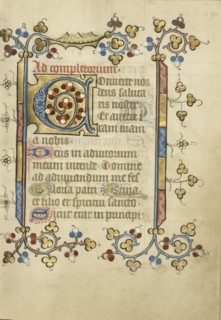 Ad completorium.
Conuerte nos
deus saluta
ris noster
Et auerte i
ram tuam
a nobis
Deus in adiutorium
meum intende Domine
ad adiuuandum me fes
Gloria patri
et filio et spiritui sancto
Sicut erat in principi